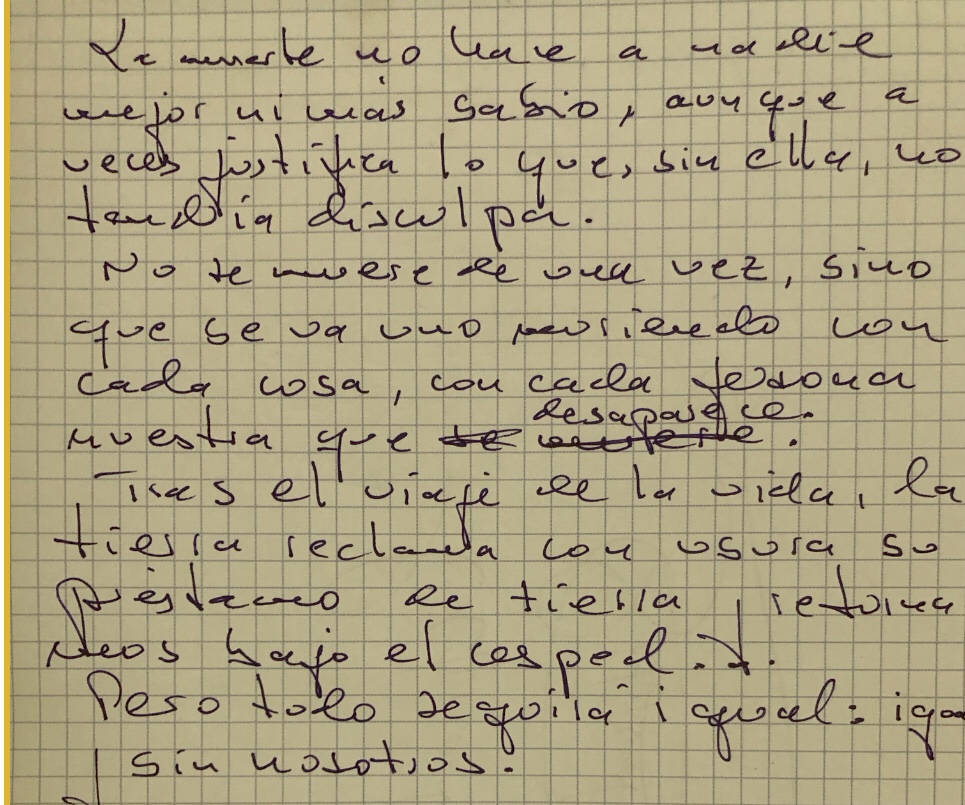 La muerte no hace a nadie
mejor ni más sabio, aunque a
veces justifica lo que, sin ella, no
tendría disculpa.
No se muere de una vez, sino
que se va uno muriendo con
cada cosa, con cada persona
nuestra que desaparece.
Tras el viaje de la vida, la
tierra reclama con usura su
préstamo de tierra y retorna
mos bajo el cesped.
Pero todo seguirá igual: igua
sin nosotros.